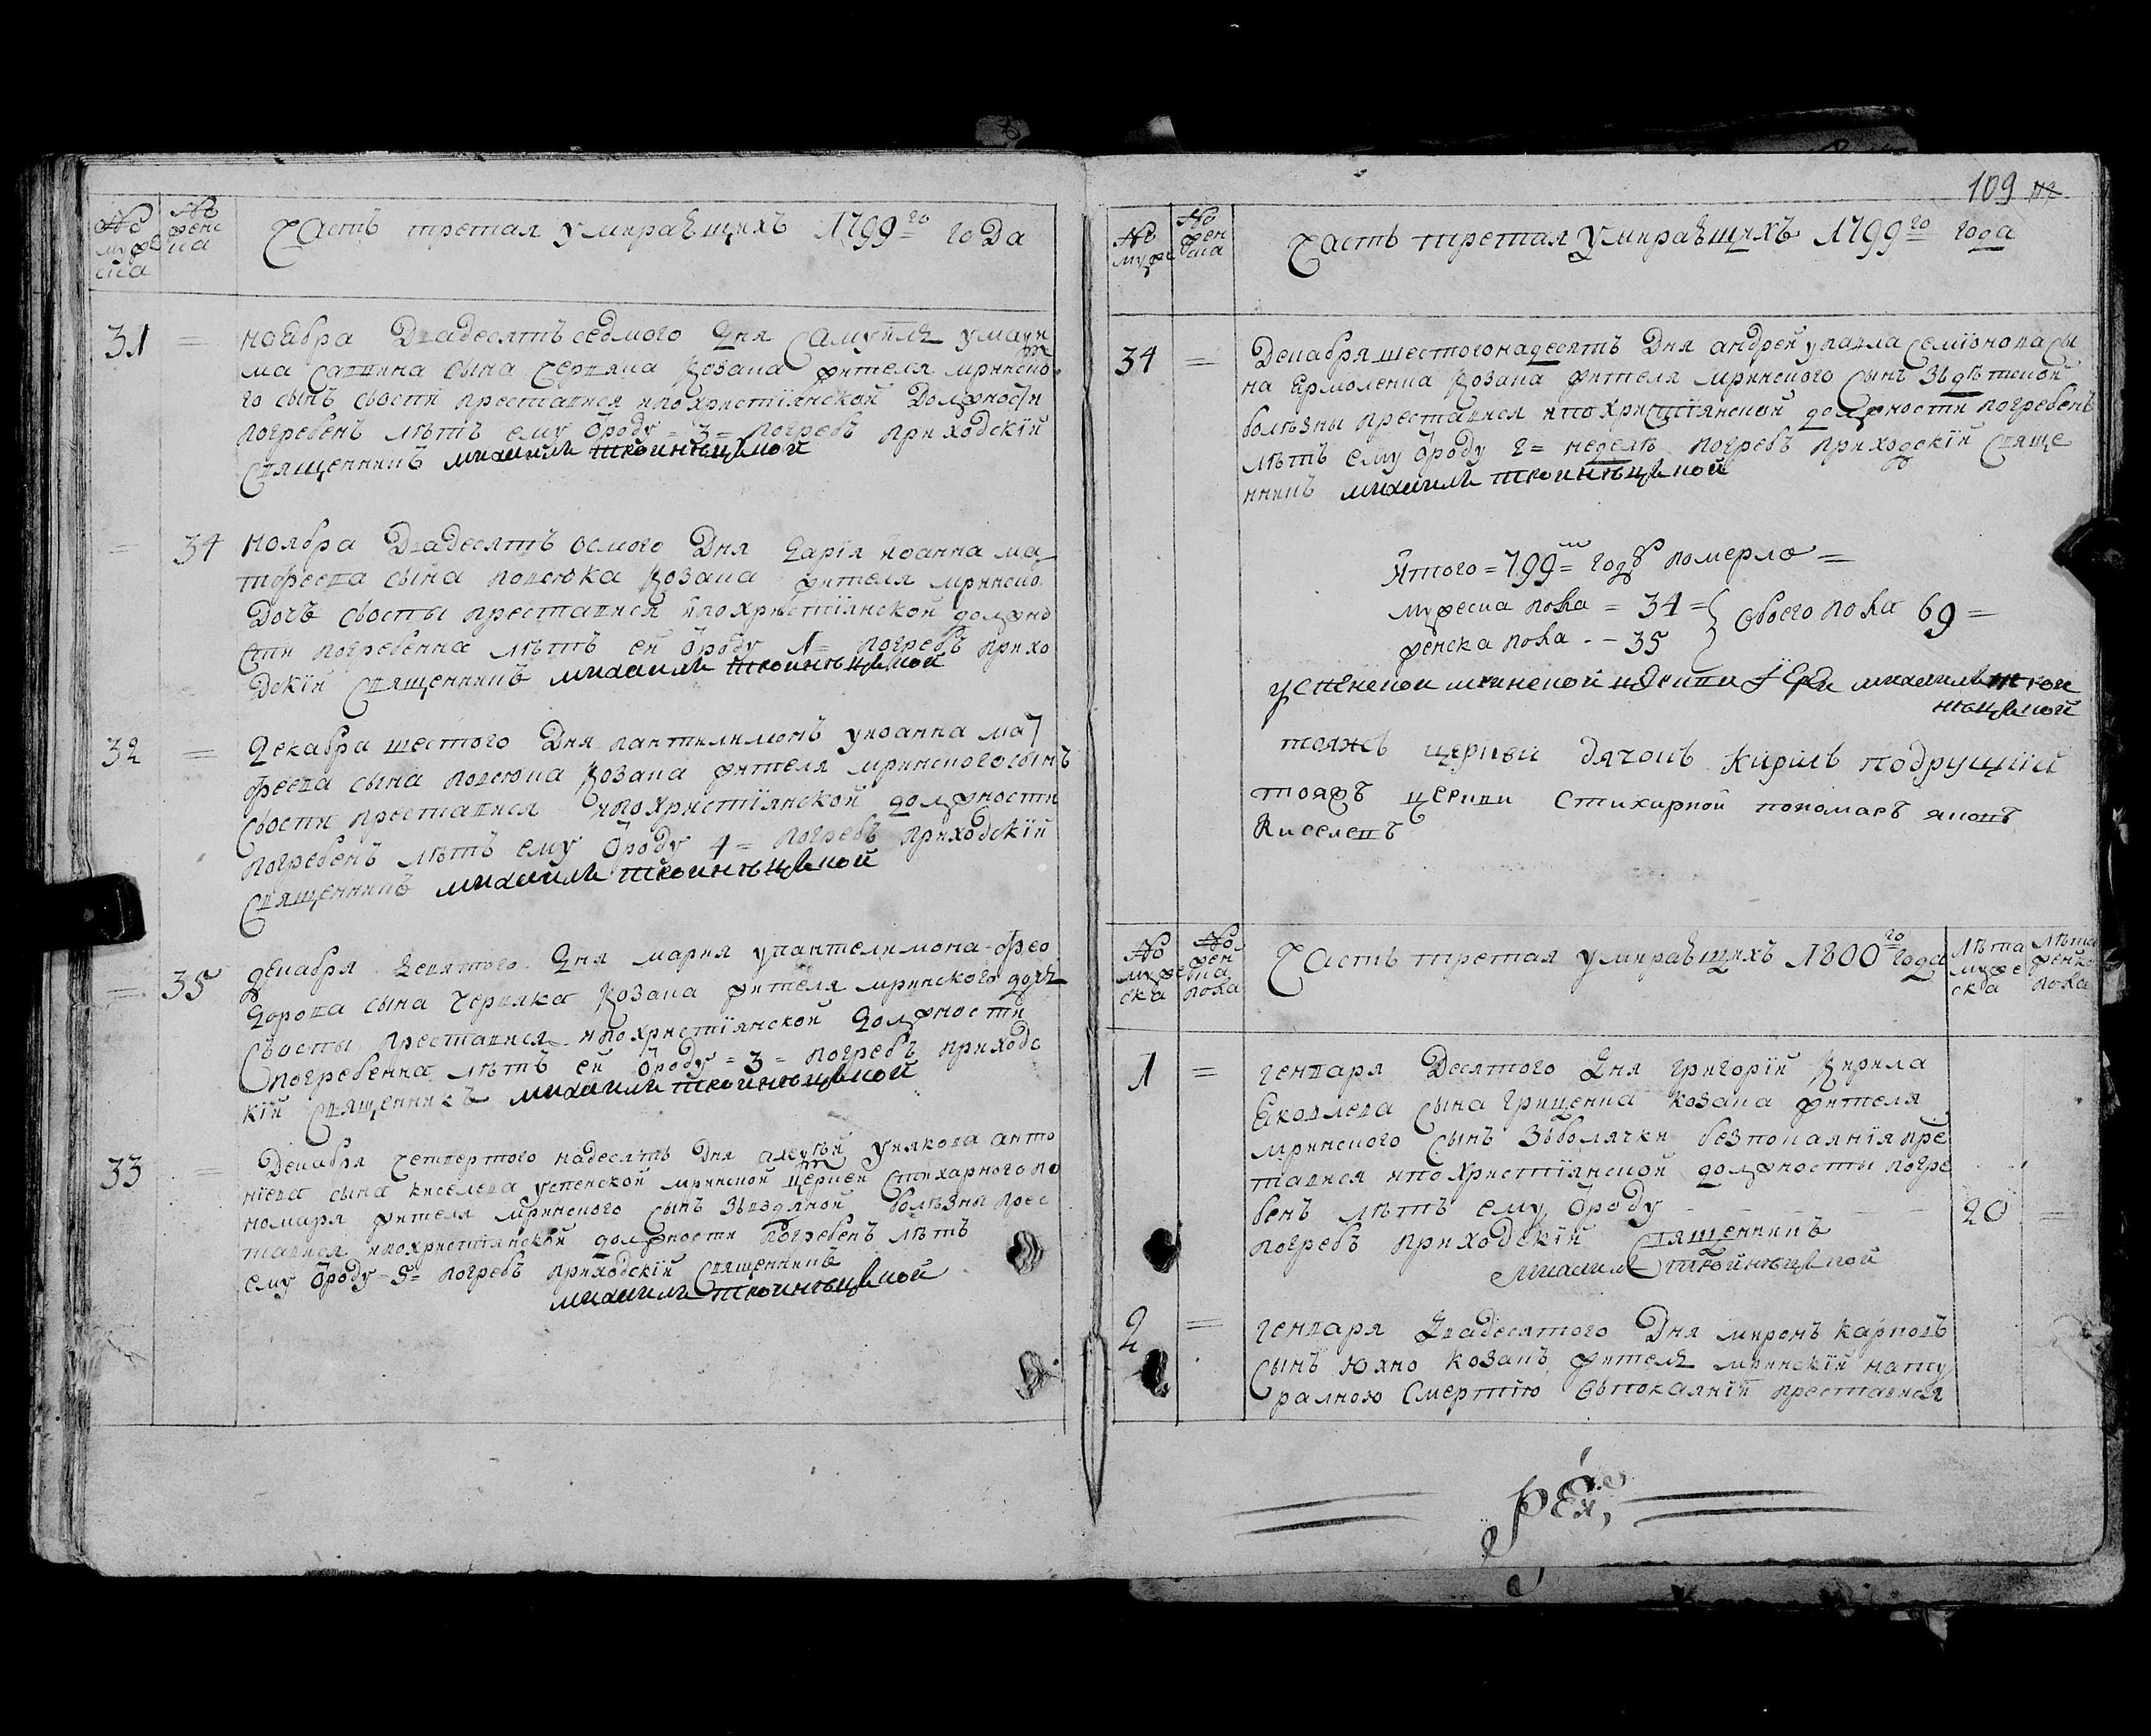 № мужеска
№ женска
Часть третая умираѣщихъ 1799го года
31 = ноября двадесятъ седмого дня Самуилъ умаки
ма Саввина сына Червяка козака жителя мринско
го сынъ своспи преставися ипохристіянской должности
погребенъ лѣтъ ему ѿроду = 3 = погребъ приходскій
Священникъ михаилъ
= 34 ноября двадесятъ осмого дня дарія иоанна ма
тфеева сына козака жителя мринско
дочъ своспы преставися ипохристіянской должно
сти погребенна лѣтъ ей ѿроду 1 = погребъ прихо
дскій Священникъ михаилъ
32 = декабра шестого дня пантилимонъ уиоанна мат
феева сына козака жителя мринского сынъ
своспи преставися ипохристіянской должности
погребенъ лѣтъ ему ѿроду 4 = погребъ приходскій
Священникъ михаилъ
= 35 декабря девятого дня мария упантелимона фео
дорова сына червяка козака жителя мринского дочъ
своспы преставися ипохристіянской должности
погребенна лѣтъ ей ѿроду = 3 = погребъ приходс
кій Священникъ михаилъ
33 = Декабря четвертого надесять дня алеѯѣй уиякова анто
нієва сына киселева успенской мринской церкви стихарного по
номаря жителя мринского сынъ болѣзны прес
тавися ипохристіянской должности погребенъ лѣтъ
ему ѿроду 5 = погребъ приходскій Священникъ
михаилъ
109
№ муже
№ женска
Часть третая умираѣщихъ 1799го года
34 = Декабря шестогонадесятъ дня андрей упавла семіонова сы
на Ермоленка козака жителя мринского сынъ здѣтской
болѣзны преставися ипохристіянской должности погребенъ
лѣтъ ему ѿроду 2 = неделѣ погребъ приходскій Свяще
нникъ михаилъ
Итого = 799 = годѣ померло =
мужеска пола = 34 =
женска пола - - 35
обоего пола 69 =
успенской мринской церкви Іерей михаилъ
тояжъ церкви дячокъ Кирилъ подруцкій
тояжъ церкви стихирной пономаръ яковъ
Киселевъ
№ мужеска
№ женска пола
Часть третая умираѣщихъ 1800го года
лѣта мужеска
лѣта женска пола
1 = генваря десятого дня григорій кирила
Яковлева сына гриценка козака жителя
мринского сынъ зболячки безпокаянія пре
тавися ипохристіянской должносты погре
бенъ лѣтъ ему ѿроду - - - - - 20 =
погребъ приходскій Священникъ
михаилъ
2 = генваря двадесятого дня миронъ карповъ
сынъ юхно козакъ жителъ мринскій нату
ралною смертію впокаянїи преставися